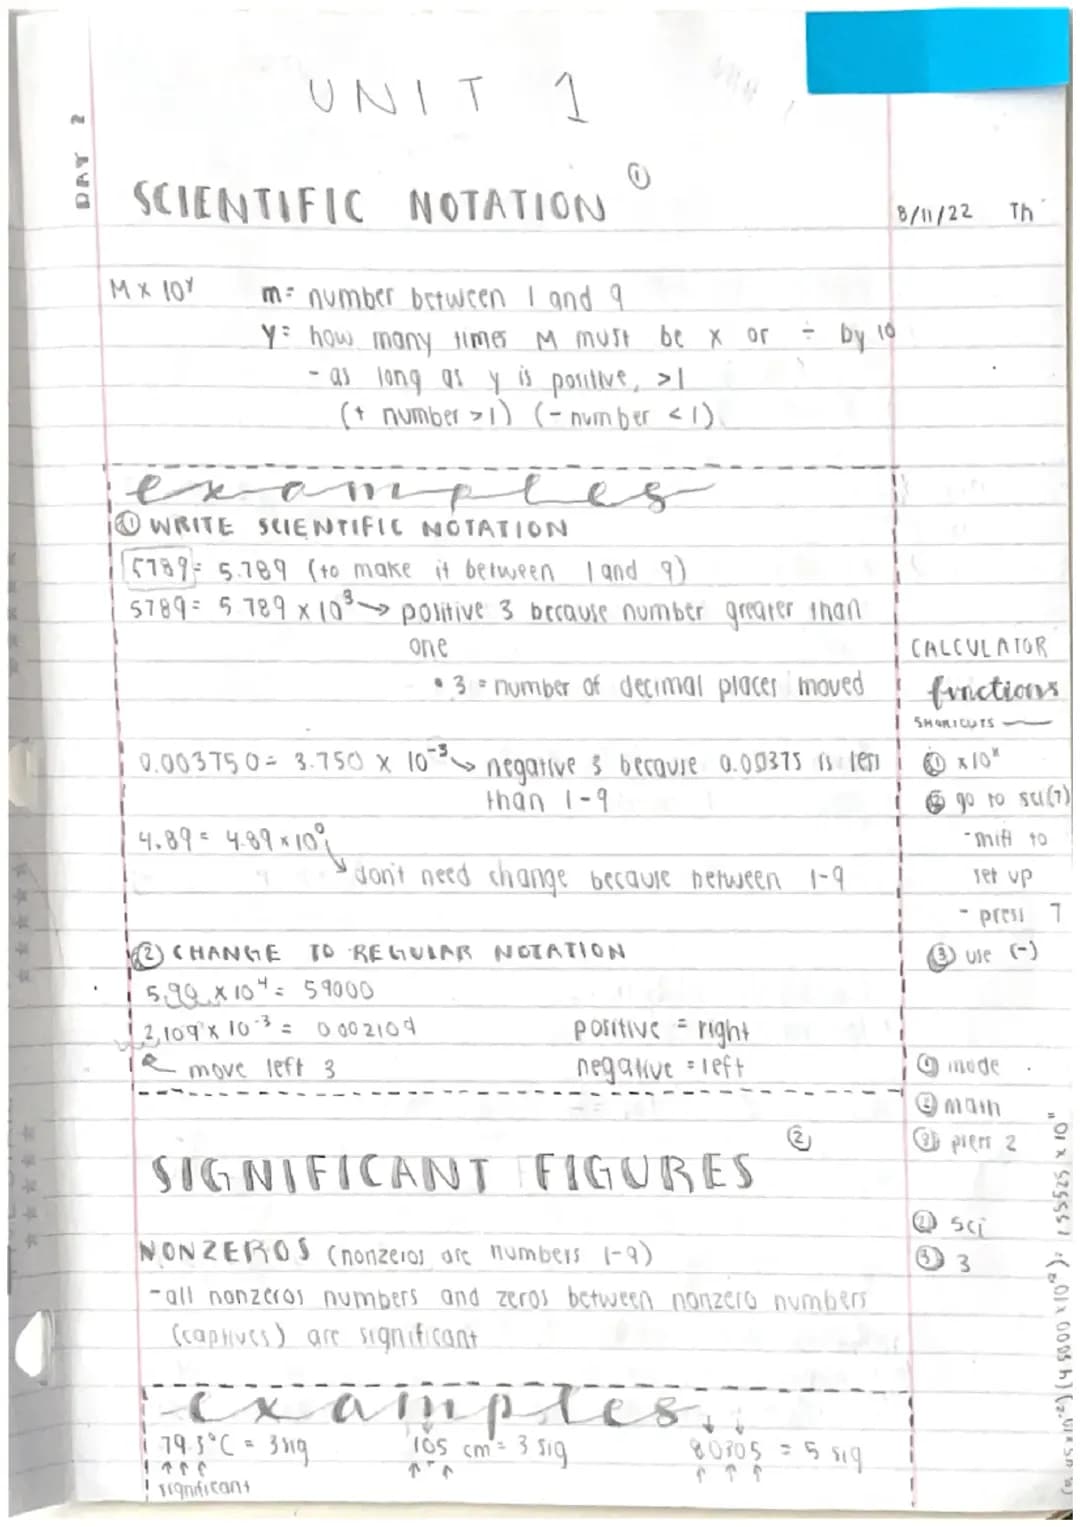 UNIT 1
DAY 2
SCIENTIFIC NOTATION ①
8/11/22 Th
M x 10ʸ m= number between 1 and 9
y= how many times M must be x or ÷ by 10
- as long as y is positive, >1
(+ number >1) (- number <1)
examples
① WRITE SCIENTIFIC NOTATION
5789= 5.789 (to make it between 1 and 9)
5789= 5.789 x 10³ → positive 3 because number greater than
one
• 3 = number of decimal places moved
0.003750= 3.750 x 10⁻³ → negative 3 because 0.00375 is less
than 1-9
4.89= 4.89 x 10⁰
don't need change because between 1-9
② CHANGE TO REGULAR NOTATION
5.90 x 10⁴= 59000
2.109 x 10⁻³= 0.002109 positive = right
move left 3 negative = left
CALCULATOR
functions
SHORTCUTS
① x10ˣ
② go to sci(7)
- shift to
set up
- press 7
③ use (-)
① mode
② math
③ press 2
② sci
③ 3
SIGNIFICANT FIGURES ②
NONZEROS (nonzeros are numbers 1-9)
-all nonzeros numbers and zeros between nonzero numbers
(captives) are significant
examples
79.3°C = 3 sig 105 cm = 3 sig 80305 = 5 sig
significant